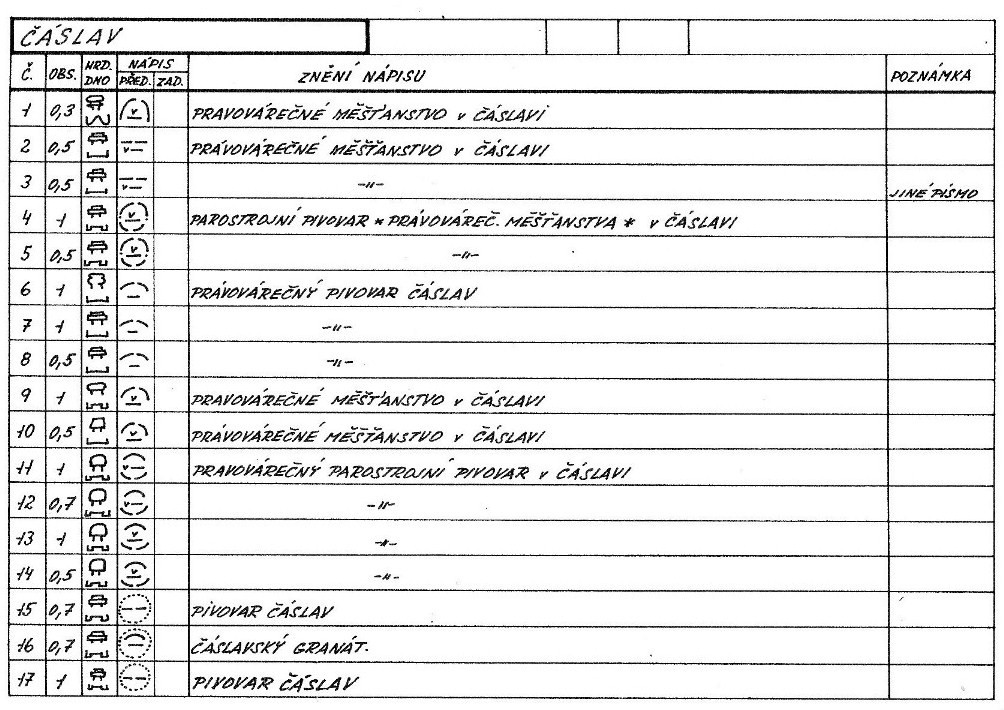 ČÁSLAV
Č. OBS. HRD. DNO NÁPIS PŘED. ZAD. ZNĚNÍ NÁPISU POZNÁMKA
1 0,3 v PRAVOVÁREČNÉ MĚŠŤANSTVO v ČÁSLAVI
2 0,5 v PRÁVOVÁREČNÉ MĚŠŤANSTVO v ČÁSLAVI
3 0,5 v -"- JINÉ PÍSMO
4 1 v PAROSTROJNÍ PIVOVAR * PRÁVOVÁREČ. MĚŠŤANSTVA * v ČÁSLAVI
5 0,5 v -"-
6 1 PRÁVOVÁREČNÝ PIVOVAR ČÁSLAV
7 1 -"-
8 0,5 -"-
9 1 v PRAVOVÁREČNÉ MĚŠŤANSTVO v ČÁSLAVI
10 0,5 v PRÁVOVÁREČNÉ MĚŠŤANSTVO v ČÁSLAVI
11 1 v PRAVOVÁREČNÝ PAROSTROJNÍ PIVOVAR v ČÁSLAVI
12 0,7 v -"-
13 1 v -"-
14 0,5 v -"-
15 0,7 PIVOVAR ČÁSLAV
16 0,7 ČÁSLAVSKÝ GRANÁT.
17 1 PIVOVAR ČÁSLAV